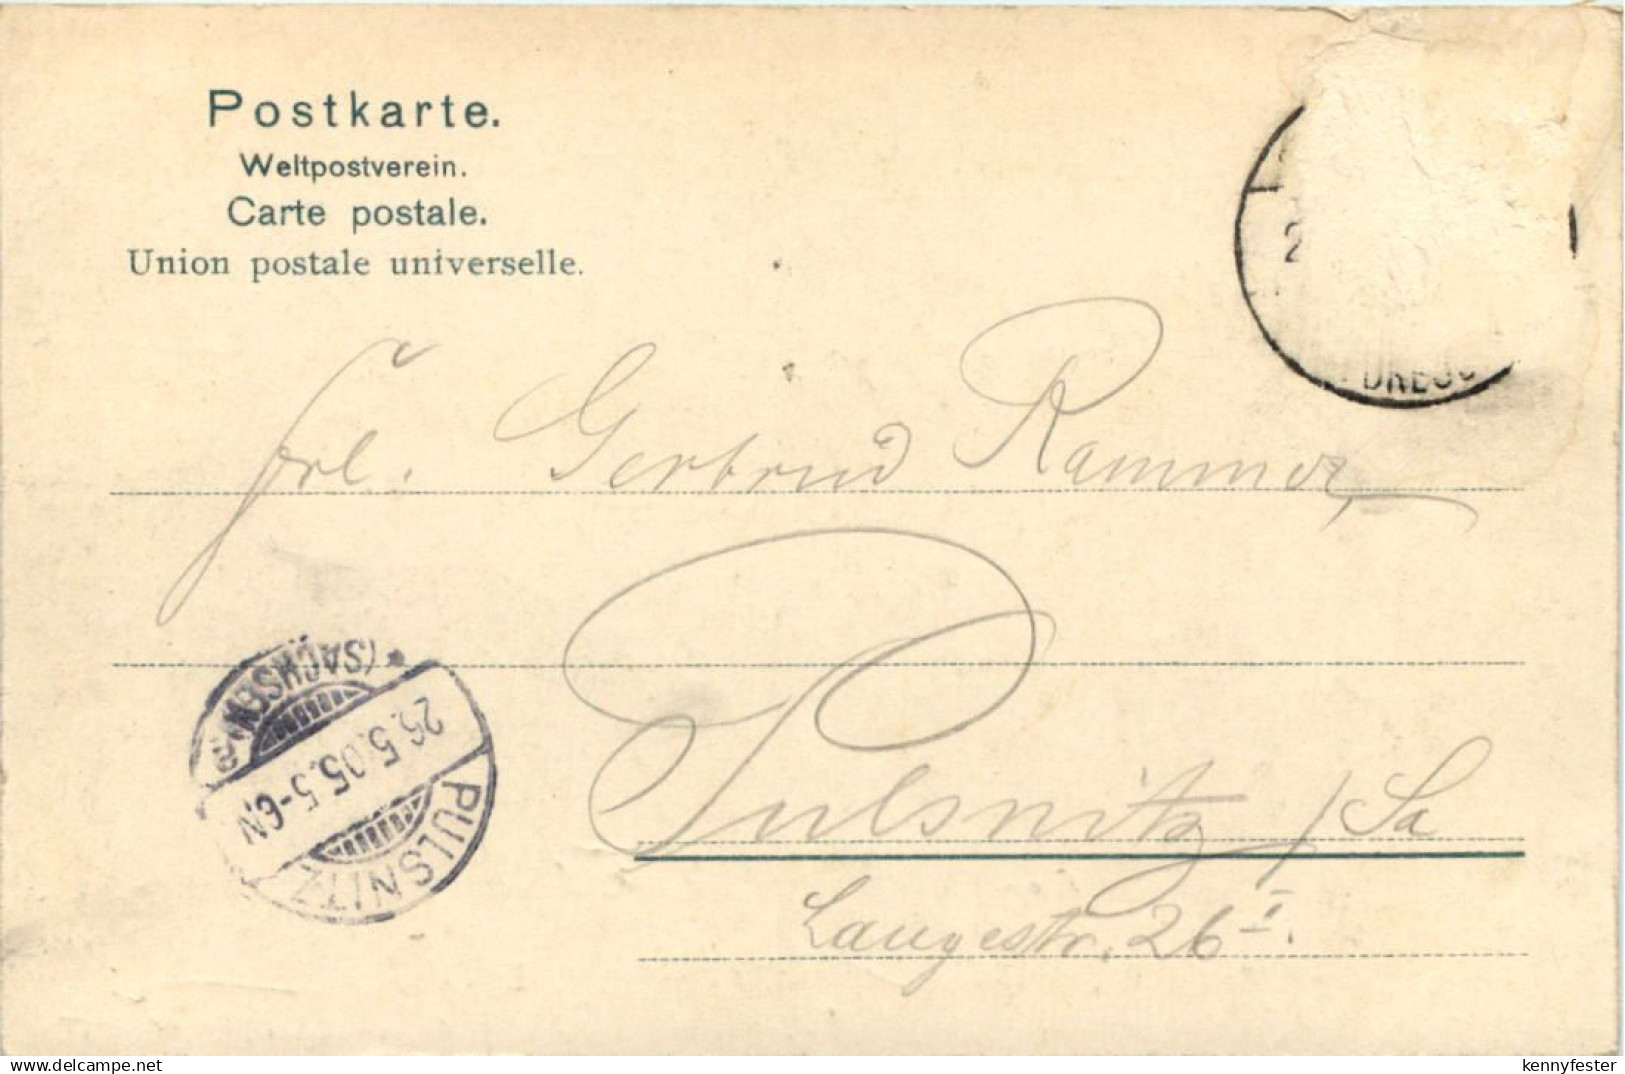 Postkarte.
Weltpostverein.
Carte postale.
Union postale universelle.
Frl. Gertrud Rammer,
Pulsnitz /Sa
Langestr. 26 I.
PULSNITZ
(SACHSEN)
26.5.05.5-6N
DRESD
www.delcampe.net
kennyfester